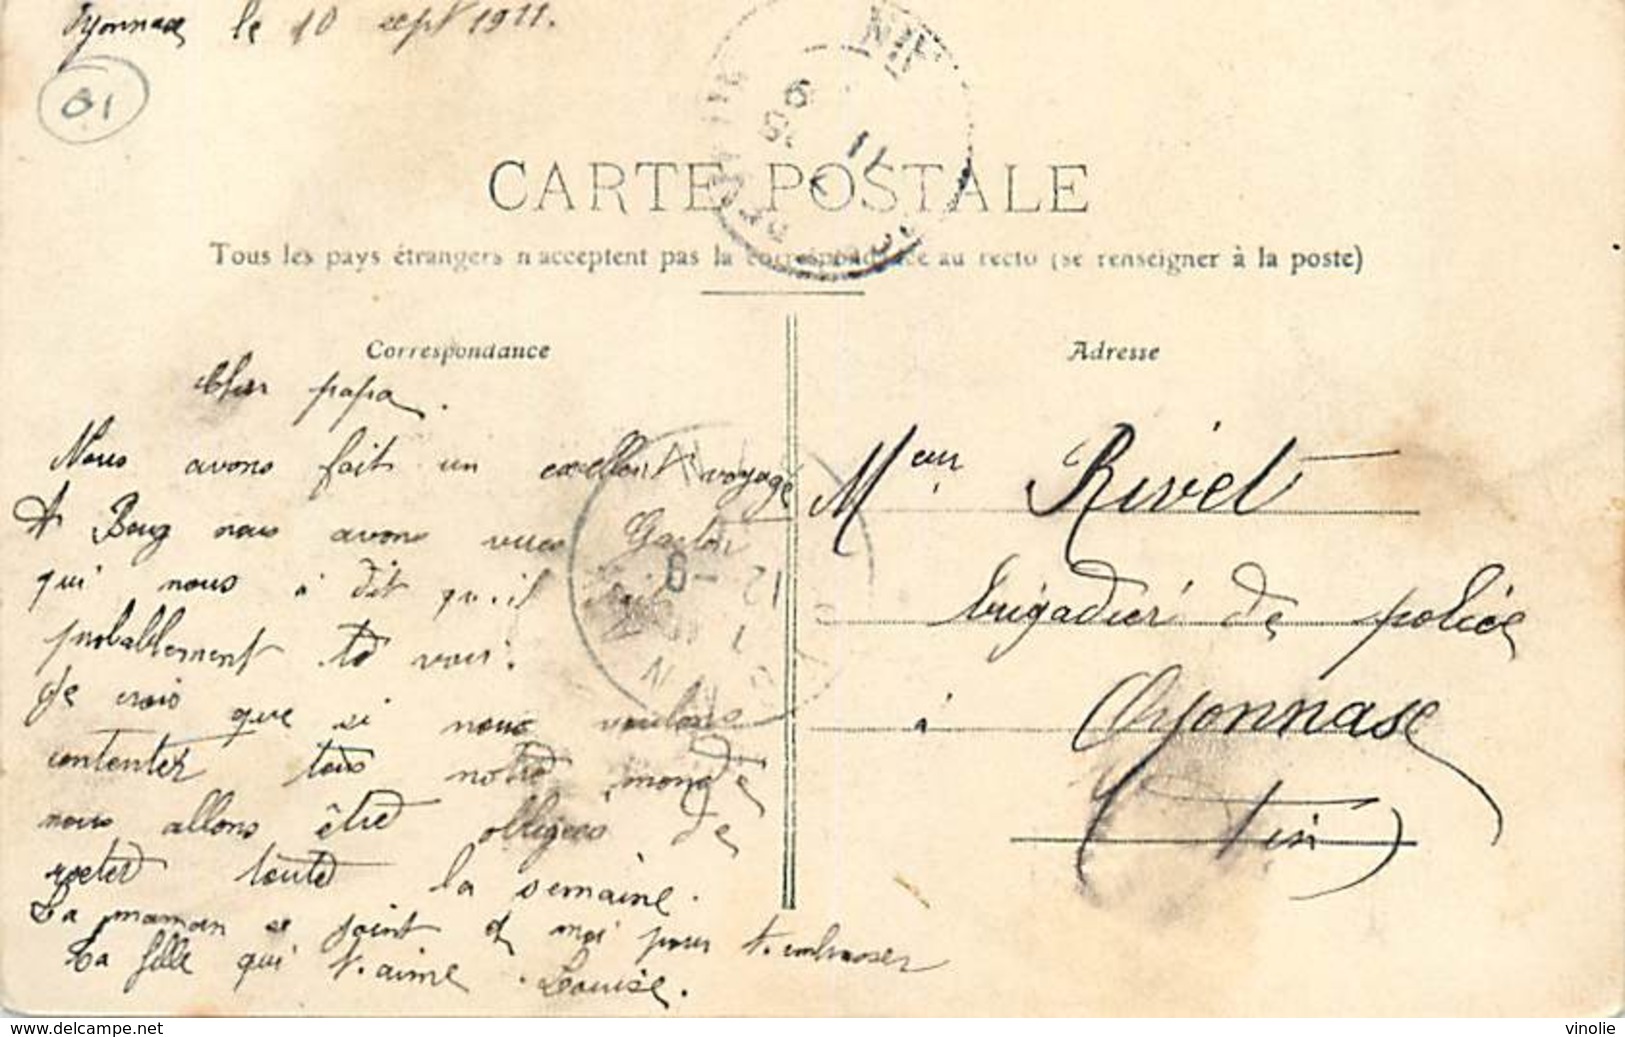 le 10 sept 1911.
01
CARTE POSTALE
Tous les pays étrangers n'acceptent pas la correspondance au recto (se renseigner à la poste)
Correspondance
Adresse
Cher papa.
Nous avons fait un excellent voyage
A Bourg nous avons vues Gaston
qui nous a dit qu'il
probablement te voir.
Je crois que si nous voulons
contenter tous notre monde
nous allons être obligées de
rester toute la semaine.
La maman se joint à moi pour t'embrasser
Ta fille qui t'aime. Louise.
Meur Rivet
brigadier de police
à Oyonnase
(Ain)
www.delcampe.net
vinolie